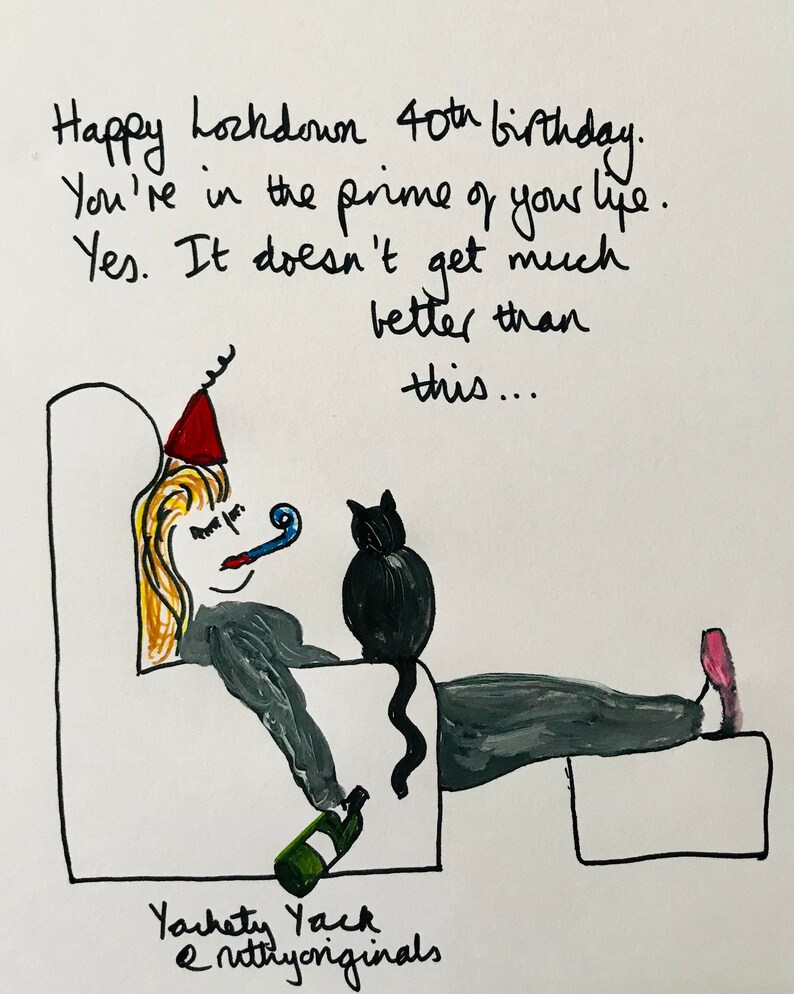 Happy Lockdown 40th birthday.
You're in the prime of your life.
Yes. It doesn't get much
better than
this...
Yackety Yack
@ruthyoriginals